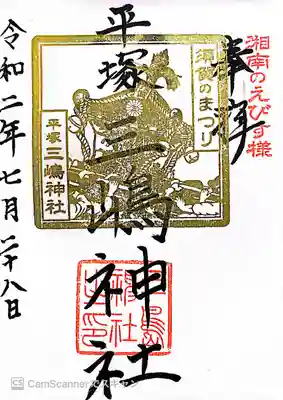 湘南のえびす様
奉拝
須賀のまつり
平塚 三嶋神社
平塚三嶋神社
令和二年七月二十八日
CS CamScannerでスキャン